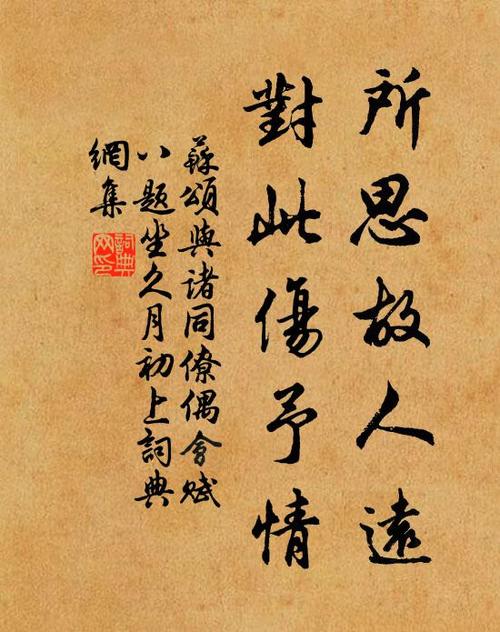 所思故人遠
對此傷予情
蘇頌與諸同僚偶會賦
八題坐久月初上詞典
網集
詞典
网印